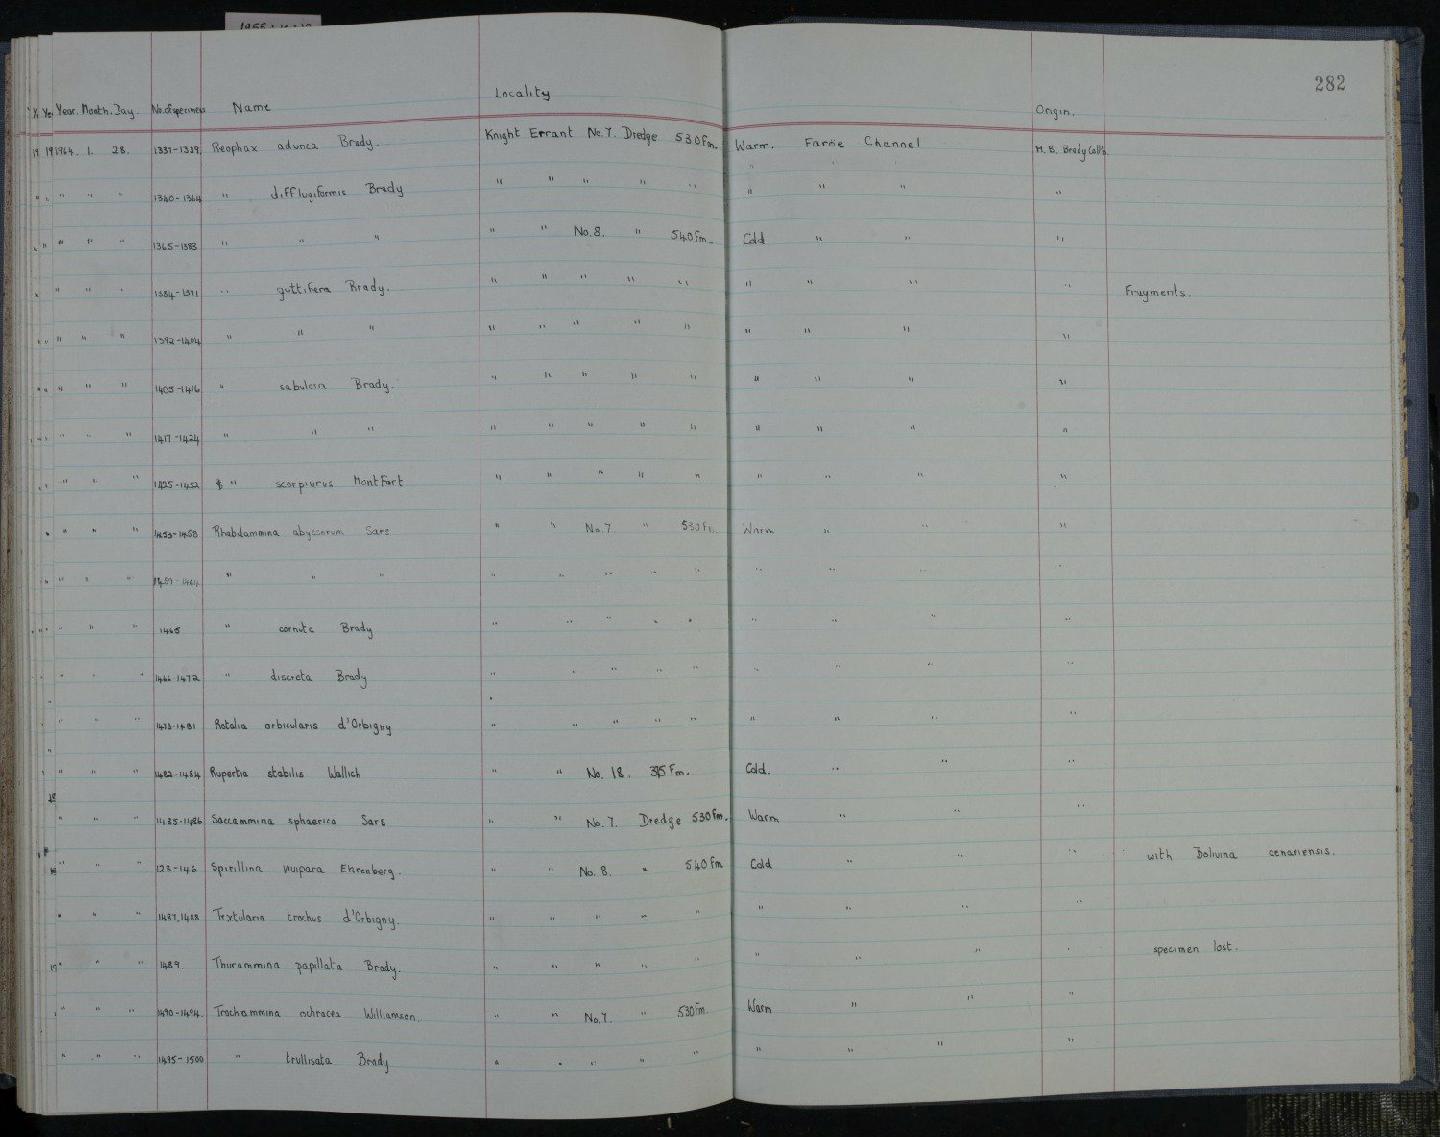 282
Year. Month. Day. No. of specimens Name Locality Origin.
1964. 1. 28. 1337-1339. Reophax adunca Brady. Knight Errant No.7. Dredge 530 Fm. Warm. Faroe Channel H. B. Brady Coll'n.
" " " 1340-1364 " difflugiformis Brady " " " " " " " " "
" " " 1365-1383 " " " " " No.8. " 540 fm. Cold " " "
" " " 1384-1391 " guttifera Brady. " " " " " " " " " Fragments.
" " " 1392-1404 " " " " " " " " " " " "
" " " 1405-1416 " sabulosa Brady. " " " " " " " " "
" " " 1417-1424 " " " " " " " " " " " "
" " " 1425-1452 " scorpiurus Montfort " " " " " " " " "
" " " 1453-1458 Rhabdammina abyssorum Sars " " No.7 " 530 Fm. Warm " " "
" " " 1459-1464 " " " " " " " " " " " "
" " " 1465 " cornuta Brady " " " " " " " " "
" " " 1466-1472 " discreta Brady " " " " " " " " "
" " " 1473-1481 Rotalia orbicularis d'Orbigny " " " " " " " " "
" " " 1482-1484 Rupertia stabilis Wallich " " No. 18. 375 Fm. Cold. " " "
" " " 1485-1486 Saccammina sphaerica Sars " " No.7. Dredge 530 Fm. Warm " " "
" " " 123-145 Spirillina vivipara Ehrenberg. " " No. 8. " 540 Fm Cold " " " with Bolivina cenariensis.
" " " 1487,1488 Textularia trochus d'Orbigny. " " " " " " " " "
" " " 1489 Thurammina papillata Brady. " " " " " " " " specimen lost.
" " " 1490-1494. Trochammina ochracea Williamson. " " No.7. " 530 Fm. Warm " " "
" " " 1495-1500 " trullisata Brady " " " " " " " " "